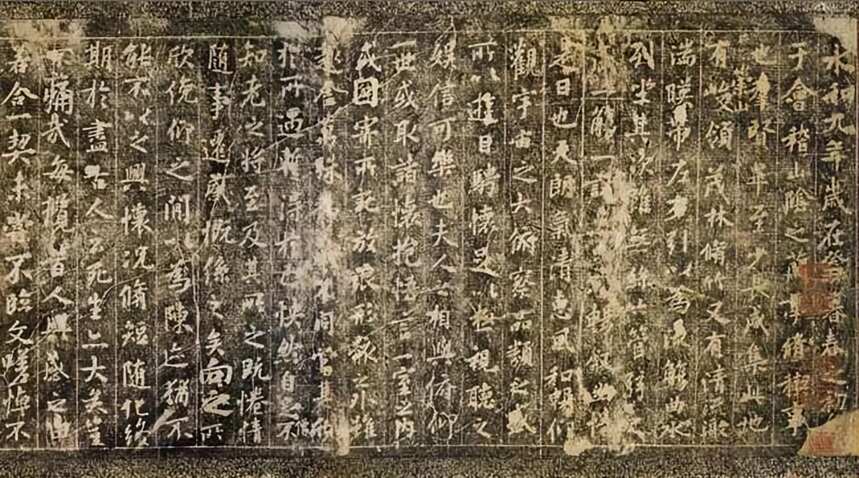 永和九年歲在癸暮春之初
于會稽山陰之蘭亭脩稧事
也羣賢畢至少長咸集此地
有崇山峻領茂林脩竹又有清流激
湍暎帶左右引以為流觴曲水
列坐其次雖無絲竹管絃之
一觴一詠暢敘幽情
是日也天朗氣清惠風和暢仰
觀宇宙之大俯察品類之盛
所以遊目騁懷足以極視聽之
娛信可樂也夫人之相與俯仰
一世或取諸懷抱悟言一室之內
或因寄所託放浪形骸之外雖
趣舍萬殊不同當其欣
於所遇暫得於己快然自足不
知老之將至及其所之既惓情
隨事遷感慨係之矣向之所
欣俛仰之間以為陳迹猶不
能不以之興懷況脩短隨化終
期於盡古人云死生亦大矣豈
不痛哉每攬昔人興感之由
若合一契未嘗不臨文嗟悼不